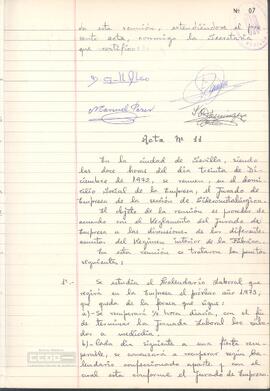 Nº 07
da esta reunión, extendiéndose el pre-
sente acta, conmigo la Secretaria
que certifico:
Manuel Pérez
Acta Nº 11
En la ciudad de Sevilla, siendo
las doce horas del día treinta de Di-
ciembre de 1972, se reunen, en el domi-
cilio Social de la Empresa, el Jurado de
Empresa de la sección de Siderometalúrgica.
El objeto de la reunión es proceder de
acuerdo con el Reglamento del Jurado de
Empresa a las discusiones de los diferentes
asuntos del Régimen interior de la Fábrica.
En esta reunión se trataron los puntos
siguientes:
1º.- Se estudia el Calendario Laboral que
regirá en la Empresa el próximo año 1973,
que queda de la forma que sigue:
a)- Se recuperará ½ hora diaria, con el fin
de terminar la Jornada Laboral los sába-
dos a mediodía.
b)- Cada día siguiente a una fiesta recu-
perable, se comenzará a recuperar según Ca-
lendario confeccionado aparte y con el
cual está conforme el Jurado de Empresa
CCOO